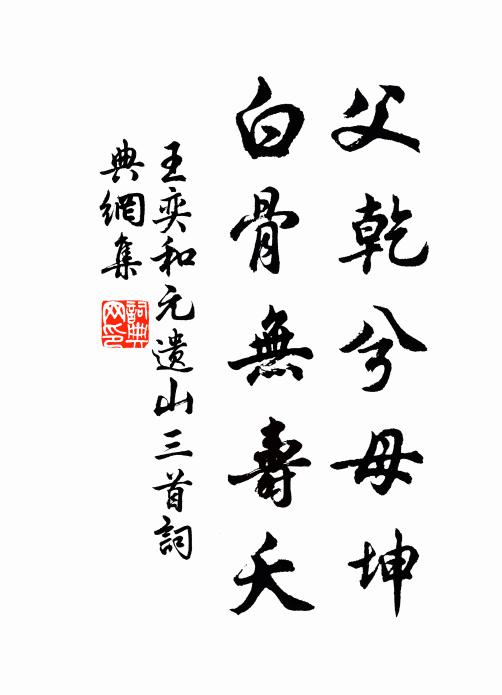 父乾兮母坤
白骨無壽夭
王奕和元遺山三首詞
典網集
詞典
网印